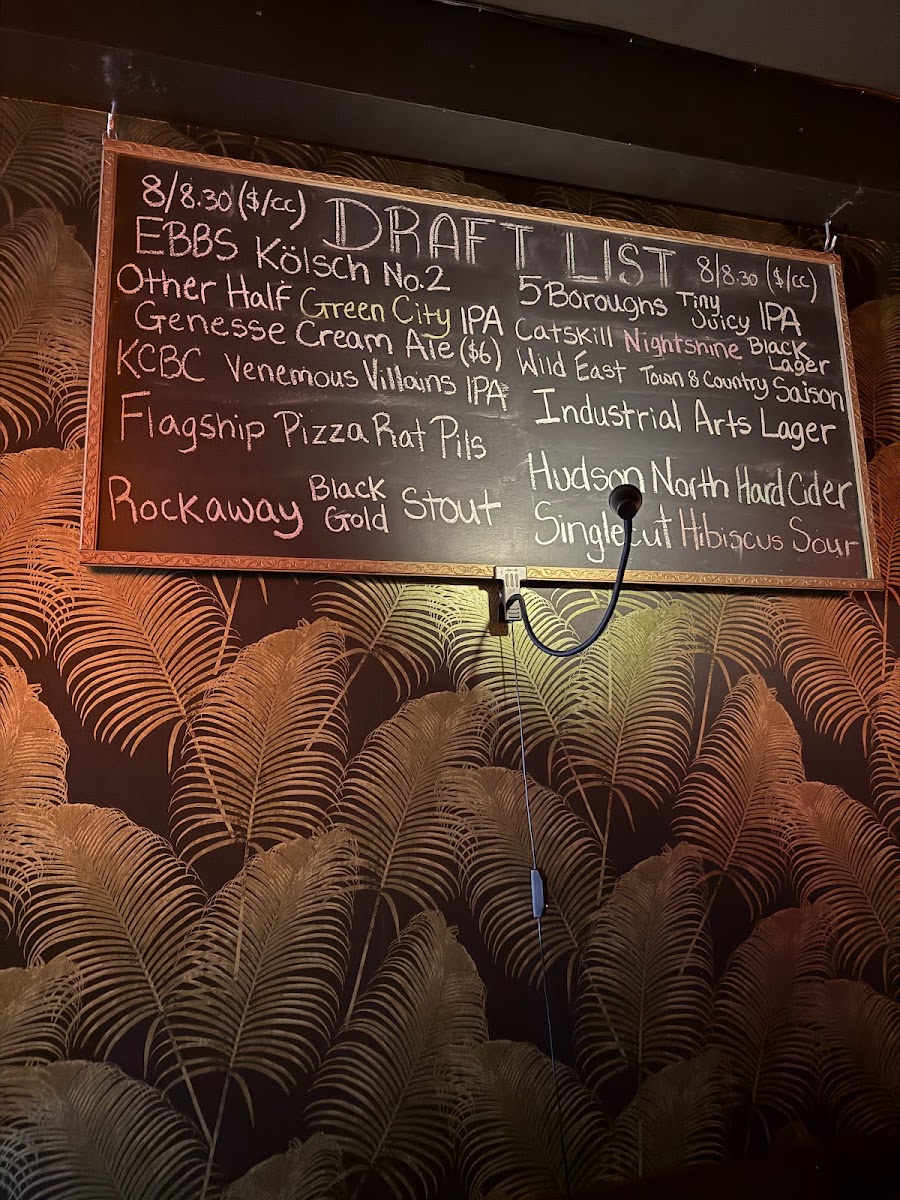 DRAFT LIST
8/8.30 ($/cc)
EBBS Kölsch No.2
Other Half Green City IPA
Genesse Cream Ale ($6)
KCBC Venemous Villains IPA
Flagship Pizza Rat Pils
Rockaway Black Gold Stout
8/8.30 ($/cc)
5 Boroughs Tiny Juicy IPA
Catskill Nightshine Black Lager
Wild East Town & Country Saison
Industrial Arts Lager
Hudson North Hard Cider
Singlecut Hibiscus Sour